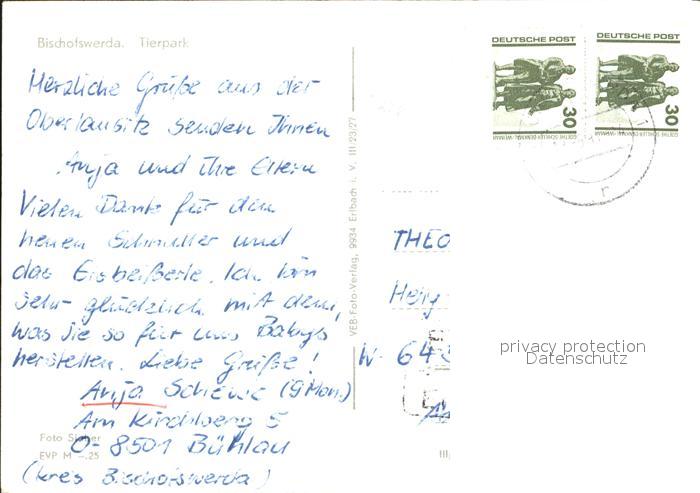 Bischofswerda. Tierpark
Herzliche Grüße aus der
Oberlausitz senden Ihnen
Anja und ihre Eltern
Vielen Dank für den
neuen Schnuller und
das Eisbeißerle. Ich bin
sehr glücklich mit dem,
was Sie so für uns Babys
herstellen. Liebe Grüße!
Anja (9 Mon.)
Am Kirchberg 5
O-8501 Bühlau
(Kreis Bischofswerda)
Foto
EVP M -.25
VEB Foto-Verlag, 9934 Erlbach i. V. III/23/27
DEUTSCHE POST
30
GOETHE-SCHILLER-DENKMAL, WEIMAR
DEUTSCHE POST
30
GOETHE-SCHILLER-DENKMAL, WEIMAR
THEO
W-
privacy protection
Datenschutz